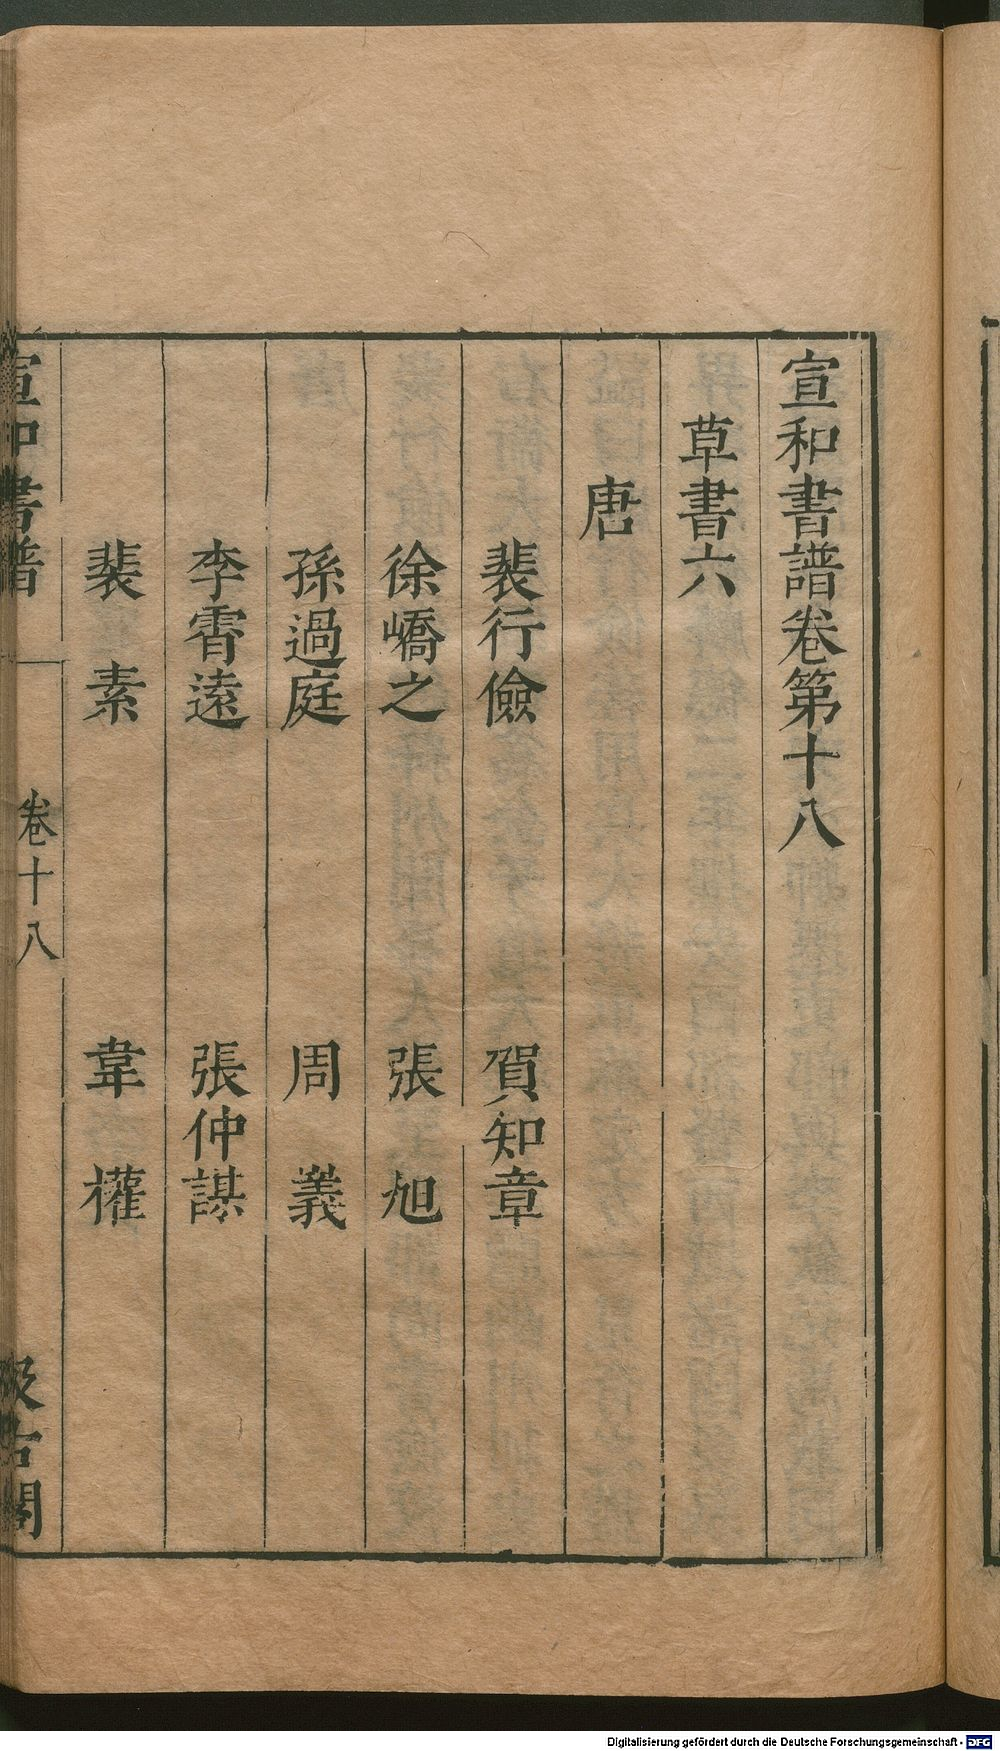 宣和書譜卷第十八
草書六
唐
裴行儉　賀知章
徐嶠之　張　旭
孫過庭　周　義
李霄遠　張仲謀
裴　素　韋　權
宣和書譜　卷十八　汲古閣
Digitalisierung gefördert durch die Deutsche Forschungsgemeinschaft - DFG